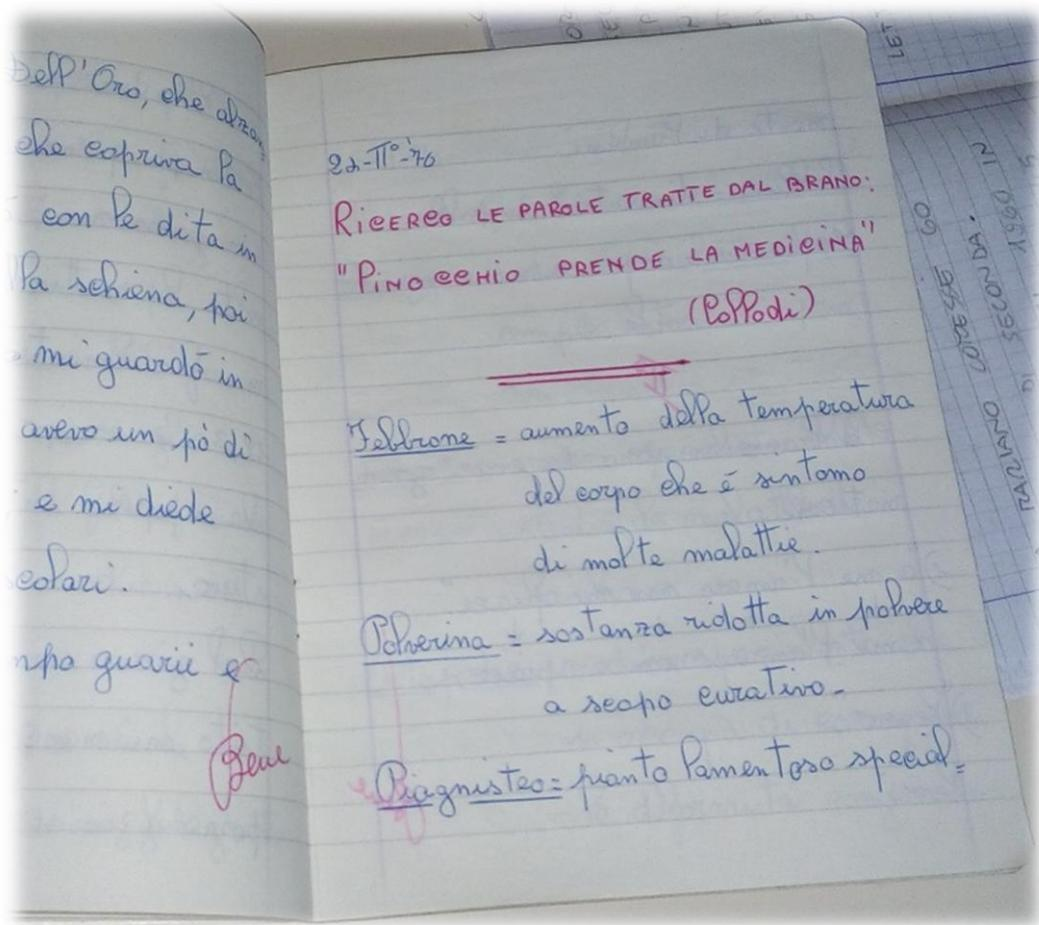 Dell'Oro, che alzan=
che copriva la
con le dita in
la schiena, poi
mi guardò in
avevo un pò di
e mi diede
scolari.
guarii e
Bene
22-II°-'76
RICERCO LE PAROLE TRATTE DAL BRANO:
"PINOCCHIO PRENDE LA MEDICINA"
(Collodi)
Febbrone = aumento della temperatura
del corpo che è sintomo
di molte malattie.
Polverina = sostanza ridotta in polvere
a scopo curativo.
Piagnisteo = pianto lamentoso special=
LET
MARZIANO CORRESSE 60
SECONDA.
1990 IN